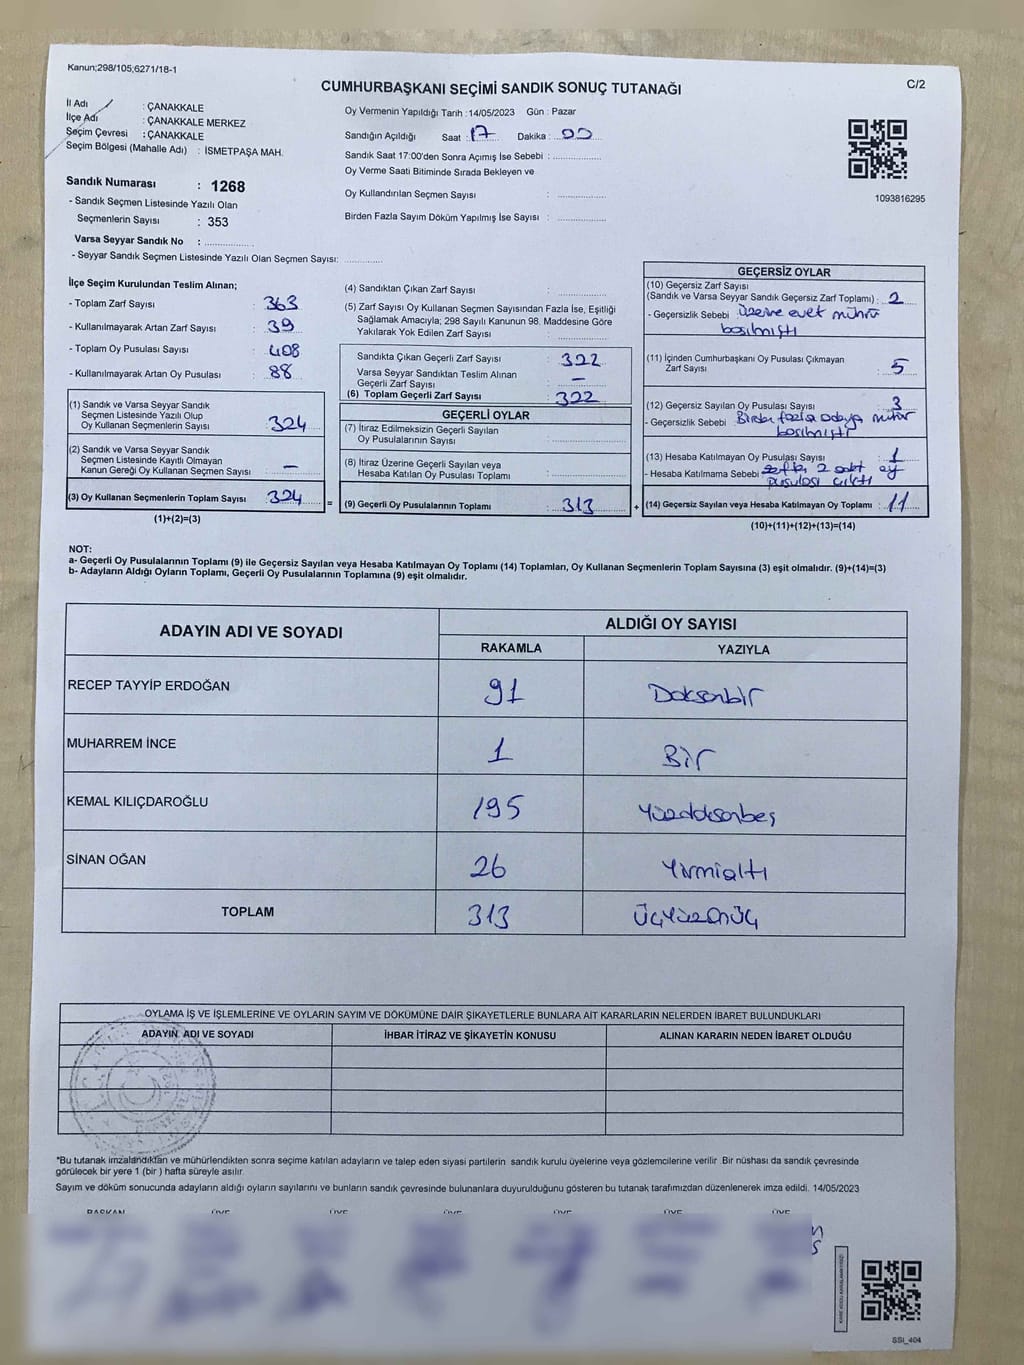 Kanun;298/105;6271/18-1
CUMHURBAŞKANI SEÇİMİ SANDIK SONUÇ TUTANAĞI
C/2
İl Adı : ÇANAKKALE
İlçe Adı : ÇANAKKALE MERKEZ
Seçim Çevresi : ÇANAKKALE
Seçim Bölgesi (Mahalle Adı) : İSMETPAŞA MAH.
Sandık Numarası : 1268
- Sandık Seçmen Listesinde Yazılı Olan
Seçmenlerin Sayısı : 353
Varsa Seyyar Sandık No :
- Seyyar Sandık Seçmen Listesinde Yazılı Olan Seçmen Sayısı:
Oy Vermenin Yapıldığı Tarih :14/05/2023 Gün : Pazar
Sandığın Açıldığı Saat : 17 Dakika : 00
Sandık Saat 17:00'den Sonra Açımış İse Sebebi :
Oy Verme Saati Bitiminde Sırada Bekleyen ve
Oy Kullandırılan Seçmen Sayısı :
Birden Fazla Sayım Döküm Yapılmış İse Sayısı :
1093816295
İlçe Seçim Kurulundan Teslim Alınan;
- Toplam Zarf Sayısı : 363
- Kullanılmayarak Artan Zarf Sayısı : 39
- Toplam Oy Pusulası Sayısı : 408
- Kullanılmayarak Artan Oy Pusulası : 88
(1) Sandık ve Varsa Seyyar Sandık
Seçmen Listesinde Yazılı Olup
Oy Kullanan Seçmenlerin Sayısı : 324
(2) Sandık ve Varsa Seyyar Sandık
Seçmen Listesinde Kayıtlı Olmayan
Kanun Gereği Oy Kullanan Seçmen Sayısı : –
(3) Oy Kullanan Seçmenlerin Toplam Sayısı : 324 =
(1)+(2)=(3)
(4) Sandıktan Çıkan Zarf Sayısı :
(5) Zarf Sayısı Oy Kullanan Seçmen Sayısından Fazla İse, Eşitliği
Sağlamak Amacıyla; 298 Sayılı Kanunun 98. Maddesine Göre
Yakılarak Yok Edilen Zarf Sayısı :
Sandıkta Çıkan Geçerli Zarf Sayısı : 322
Varsa Seyyar Sandıktan Teslim Alınan
Geçerli Zarf Sayısı : –
(6) Toplam Geçerli Zarf Sayısı : 322
GEÇERLİ OYLAR
(7) İtiraz Edilmeksizin Geçerli Sayılan
Oy Pusulalarının Sayısı :
(8) İtiraz Üzerine Geçerli Sayılan veya
Hesaba Katılan Oy Pusulası Toplamı :
(9) Geçerli Oy Pusulalarının Toplamı : 313 +
GEÇERSİZ OYLAR
(10) Geçersiz Zarf Sayısı
(Sandık ve Varsa Seyyar Sandık Geçersiz Zarf Toplamı) : 2
- Geçersizlik Sebebi : Üzerine evet mührü
basılmıştı
(11) İçinden Cumhurbaşkanı Oy Pusulası Çıkmayan
Zarf Sayısı : 5
(12) Geçersiz Sayılan Oy Pusulası Sayısı : 3
- Geçersizlik Sebebi : Birden fazla adaya mühür
basılmıştı
(13) Hesaba Katılmayan Oy Pusulası Sayısı : 1
- Hesaba Katılmama Sebebi : zarftan 2 adet oy
pusulası çıktı
(14) Geçersiz Sayılan veya Hesaba Katılmayan Oy Toplamı : 11
(10)+(11)+(12)+(13)=(14)
NOT:
a- Geçerli Oy Pusulalarının Toplamı (9) ile Geçersiz Sayılan veya Hesaba Katılmayan Oy Toplamı (14) Toplamları, Oy Kullanan Seçmenlerin Toplam Sayısına (3) eşit olmalıdır. (9)+(14)=(3)
b- Adayların Aldığı Oyların Toplamı, Geçerli Oy Pusulalarının Toplamına (9) eşit olmalıdır.
ADAYIN ADI VE SOYADI
ALDIĞI OY SAYISI
RAKAMLA YAZIYLA
RECEP TAYYİP ERDOĞAN 91 Doksanbir
MUHARREM İNCE 1 Bir
KEMAL KILIÇDAROĞLU 195 Yüzdoksanbeş
SİNAN OĞAN 26 Yirmialtı
TOPLAM 313 ÜçYüzOnüç
OYLAMA İŞ VE İŞLEMLERİNE VE OYLARIN SAYIM VE DÖKÜMÜNE DAİR ŞİKAYETLERLE BUNLARA AİT KARARLARIN NELERDEN İBARET BULUNDUKLARI
ADAYIN ADI VE SOYADI İHBAR İTİRAZ VE ŞİKAYETİN KONUSU ALINAN KARARIN NEDEN İBARET OLDUĞU
*Bu tutanak imzalandıktan ve mühürlendikten sonra seçime katılan adayların ve talep eden siyasi partilerin sandık kurulu üyelerine veya gözlemcilerine verilir. Bir nüshası da sandık çevresinde
görülecek bir yere 1 (bir ) hafta süreyle asılır.
Sayım ve döküm sonucunda adayların aldığı oyların sayılarını ve bunların sandık çevresinde bulunanlara duyurulduğunu gösteren bu tutanak tarafımızdan düzenlenerek imza edildi. 14/05/2023
BAŞKAN ÜYE ÜYE ÜYE ÜYE ÜYE ÜYE
SSI_404